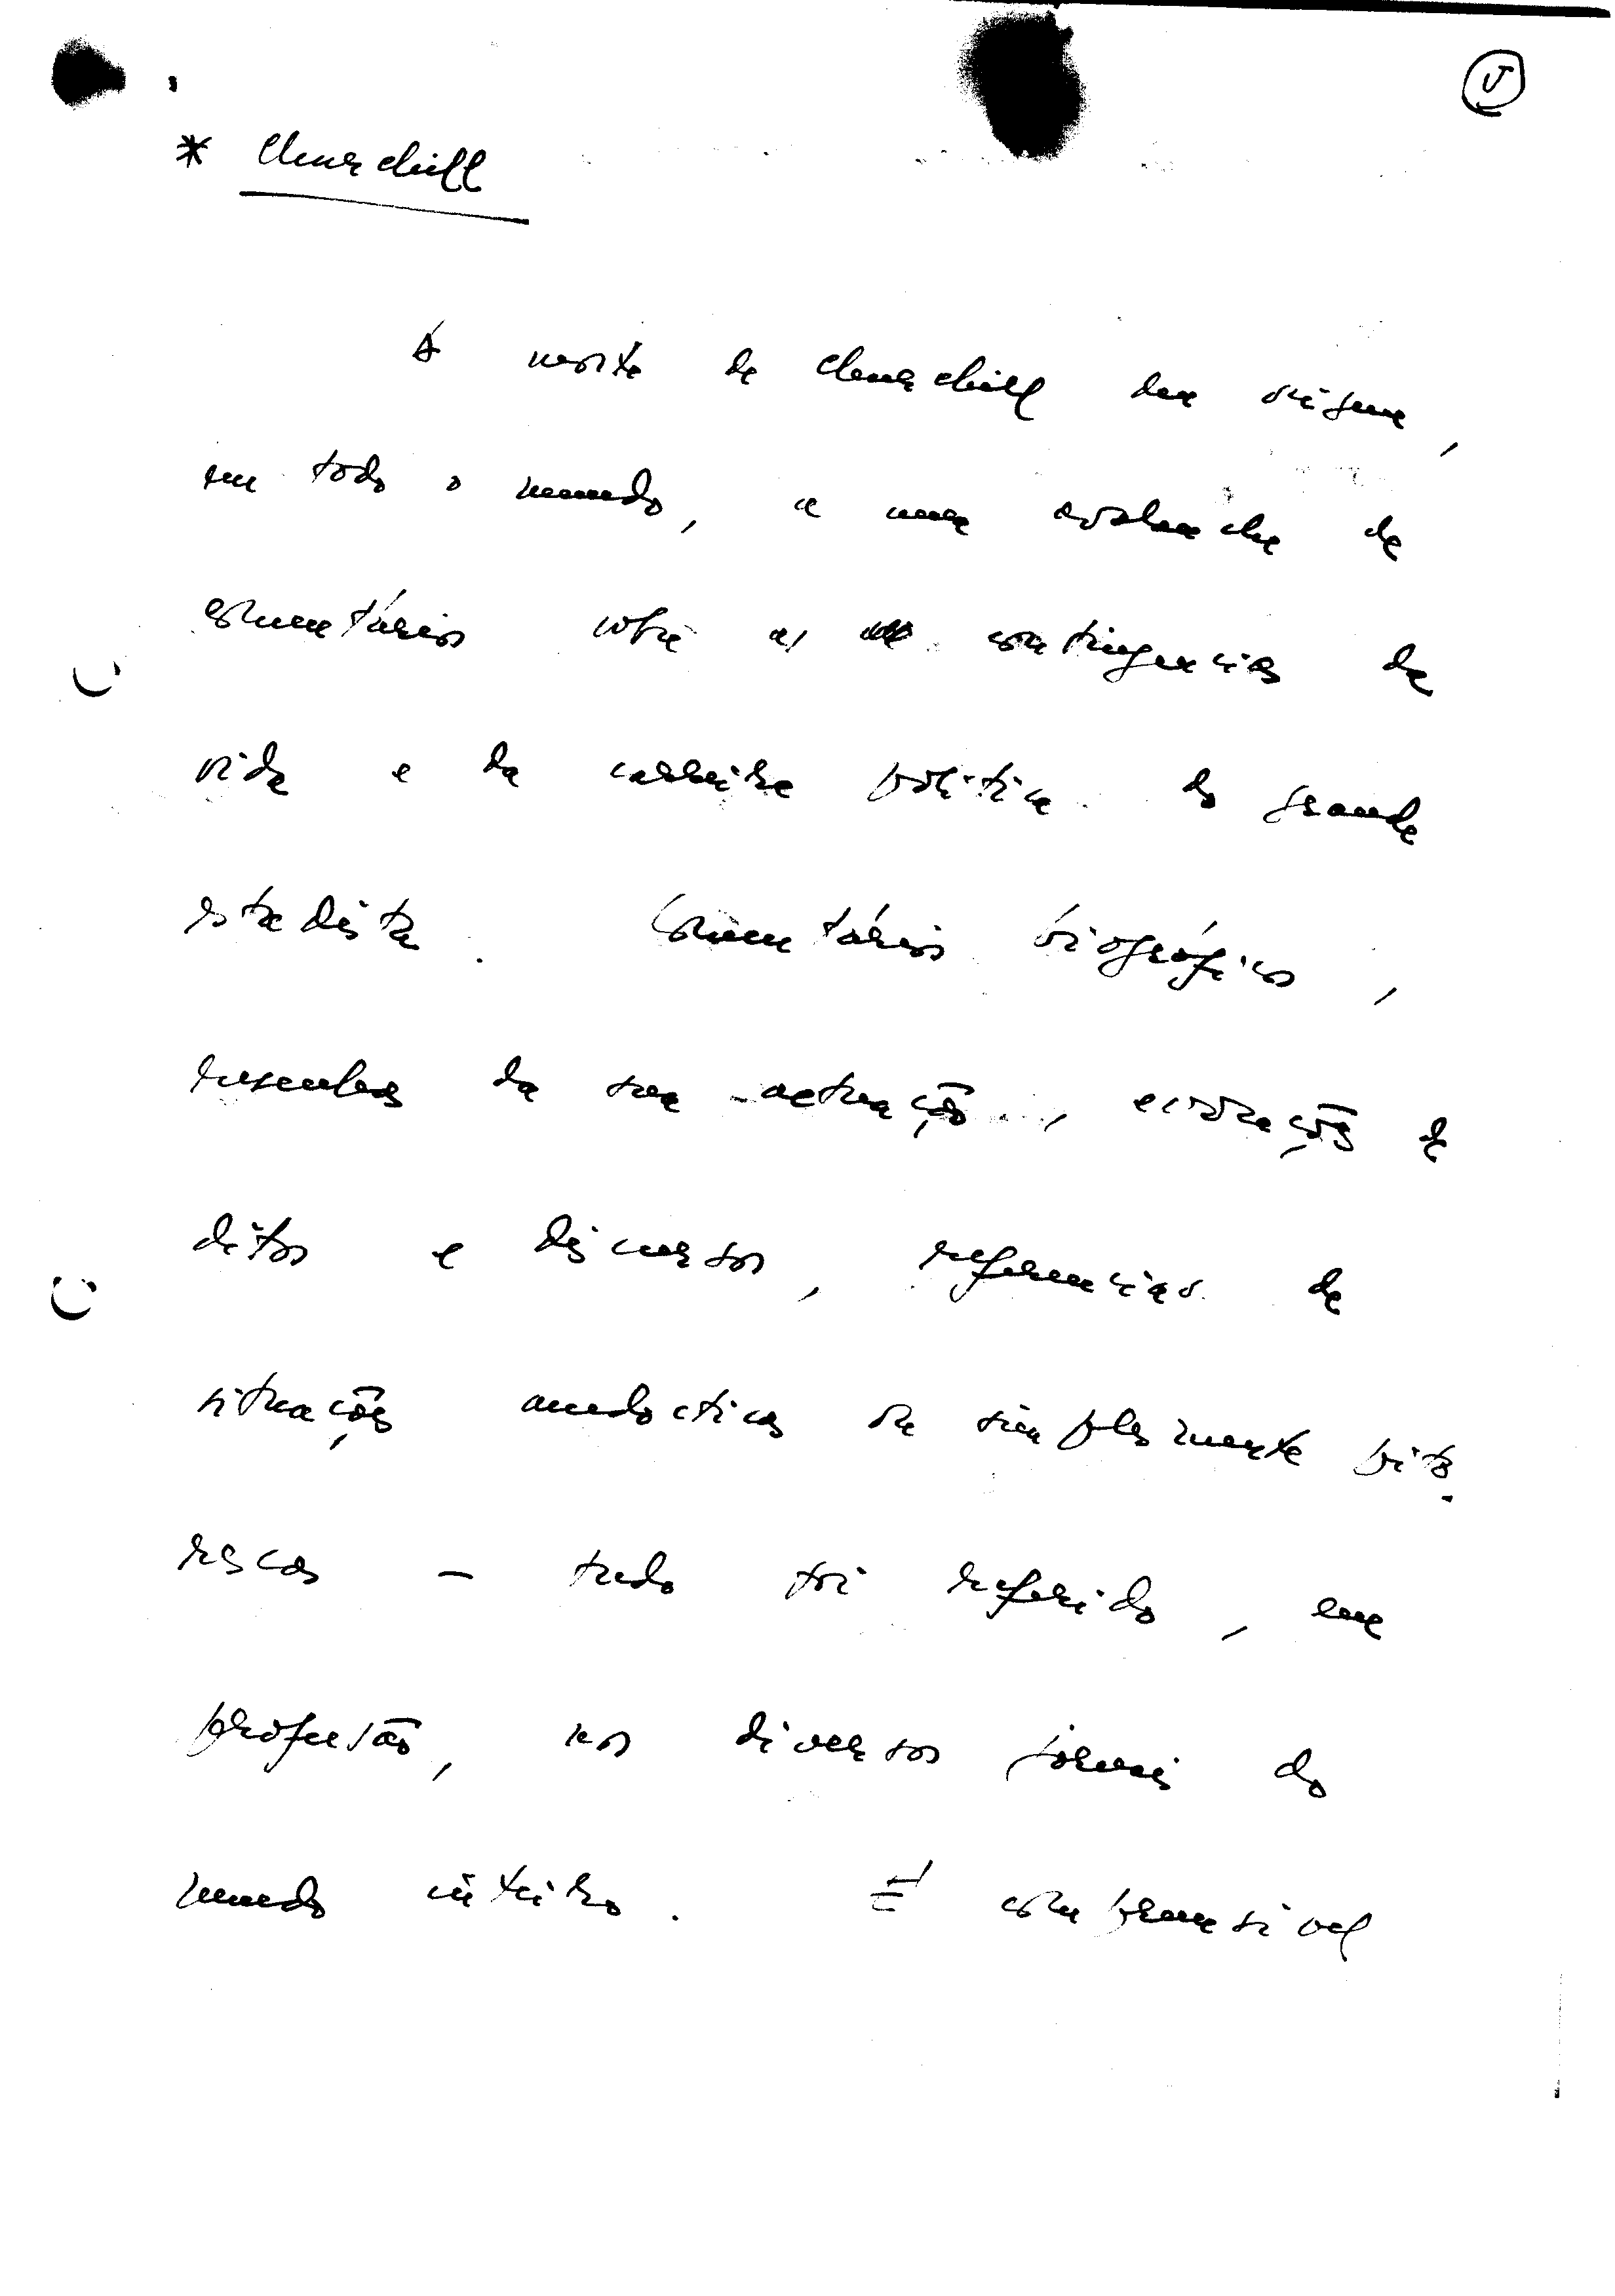 * Churchill
A morte de Churchill deu origem,
em todo o mundo, a uma avalanche de
comentários sobre as contingencias da
vida e da carreira politica do grande
estadista. Comentários biográficos,
resenhas da sua actuação, evocações de
ditos e discursos, referencias de
situações anedocticas ou simplesmente pito-
rescas – tudo foi referido, em
profusão, nos diversos jornais do
mundo inteiro. É compreensivel